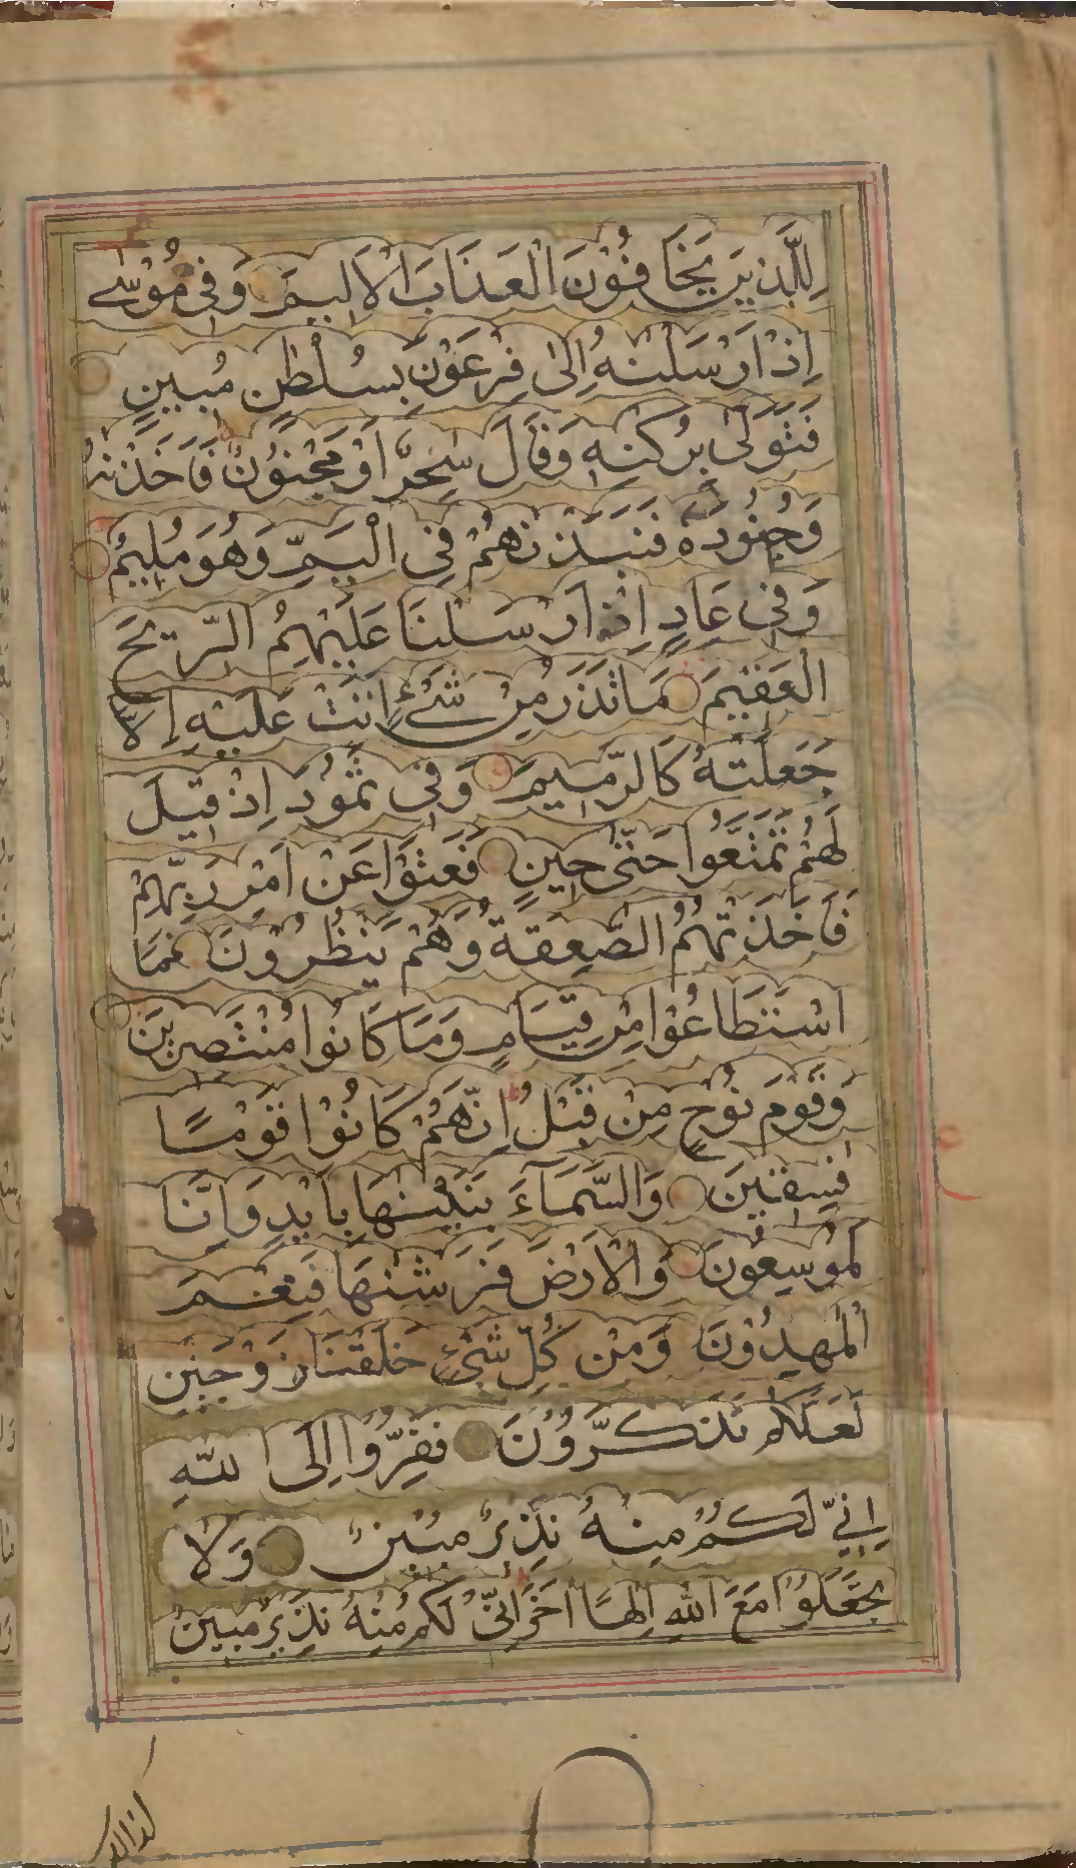 لِلَّذِينَ يَخَافُوْنَ الْعَذَابَ الْاَلِيْمَ وَفِيْ مُوْسٰى
اِذْ اَرْسَلْنٰهُ اِلٰى فِرْعَوْنَ بِسُلْطٰنٍ مُبِيْنٍ
فَتَوَلّٰى بِرُكْنِهٖ وَقَالَ سٰحِرٌ اَوْ مَجْنُوْنٌ فَاَخَذْنٰهُ
وَجُنُوْدَهٗ فَنَبَذْنٰهُمْ فِي الْيَمِّ وَهُوَ مُلِيْمٌ
وَفِيْ عَادٍ اِذْ اَرْسَلْنَا عَلَيْهِمُ الرِّيْحَ
الْعَقِيْمَ مَا تَذَرُ مِنْ شَيْءٍ اَتَتْ عَلَيْهِ اِلَّا
جَعَلَتْهُ كَالرَّمِيْمِ وَفِيْ ثَمُوْدَ اِذْ قِيْلَ
لَهُمْ تَمَتَّعُوْا حَتّٰى حِيْنٍ فَعَتَوْا عَنْ اَمْرِ رَبِّهِمْ
فَاَخَذَتْهُمُ الصّٰعِقَةُ وَهُمْ يَنْظُرُوْنَ فَمَا
اسْتَطَاعُوْا مِنْ قِيَامٍ وَمَا كَانُوْا مُنْتَصِرِيْنَ
وَقَوْمَ نُوْحٍ مِنْ قَبْلُ اِنَّهُمْ كَانُوْا قَوْمًا
فٰسِقِيْنَ وَالسَّمَآءَ بَنَيْنٰهَا بِاَيْدٍ وَاِنَّا
لَمُوْسِعُوْنَ وَالْاَرْضَ فَرَشْنٰهَا فَنِعْمَ
الْمٰهِدُوْنَ وَمِنْ كُلِّ شَيْءٍ خَلَقْنَا زَوْجَيْنِ
لَعَلَّكُمْ تَذَكَّرُوْنَ فَفِرُّوْا اِلَى اللّٰهِ
اِنِّيْ لَكُمْ مِنْهُ نَذِيْرٌ مُبِيْنٌ وَلَا
تَجْعَلُوْا مَعَ اللّٰهِ اِلٰهًا اٰخَرَ اِنِّيْ لَكُمْ مِنْهُ نَذِيْرٌ مُبِيْنٌ
كذالك